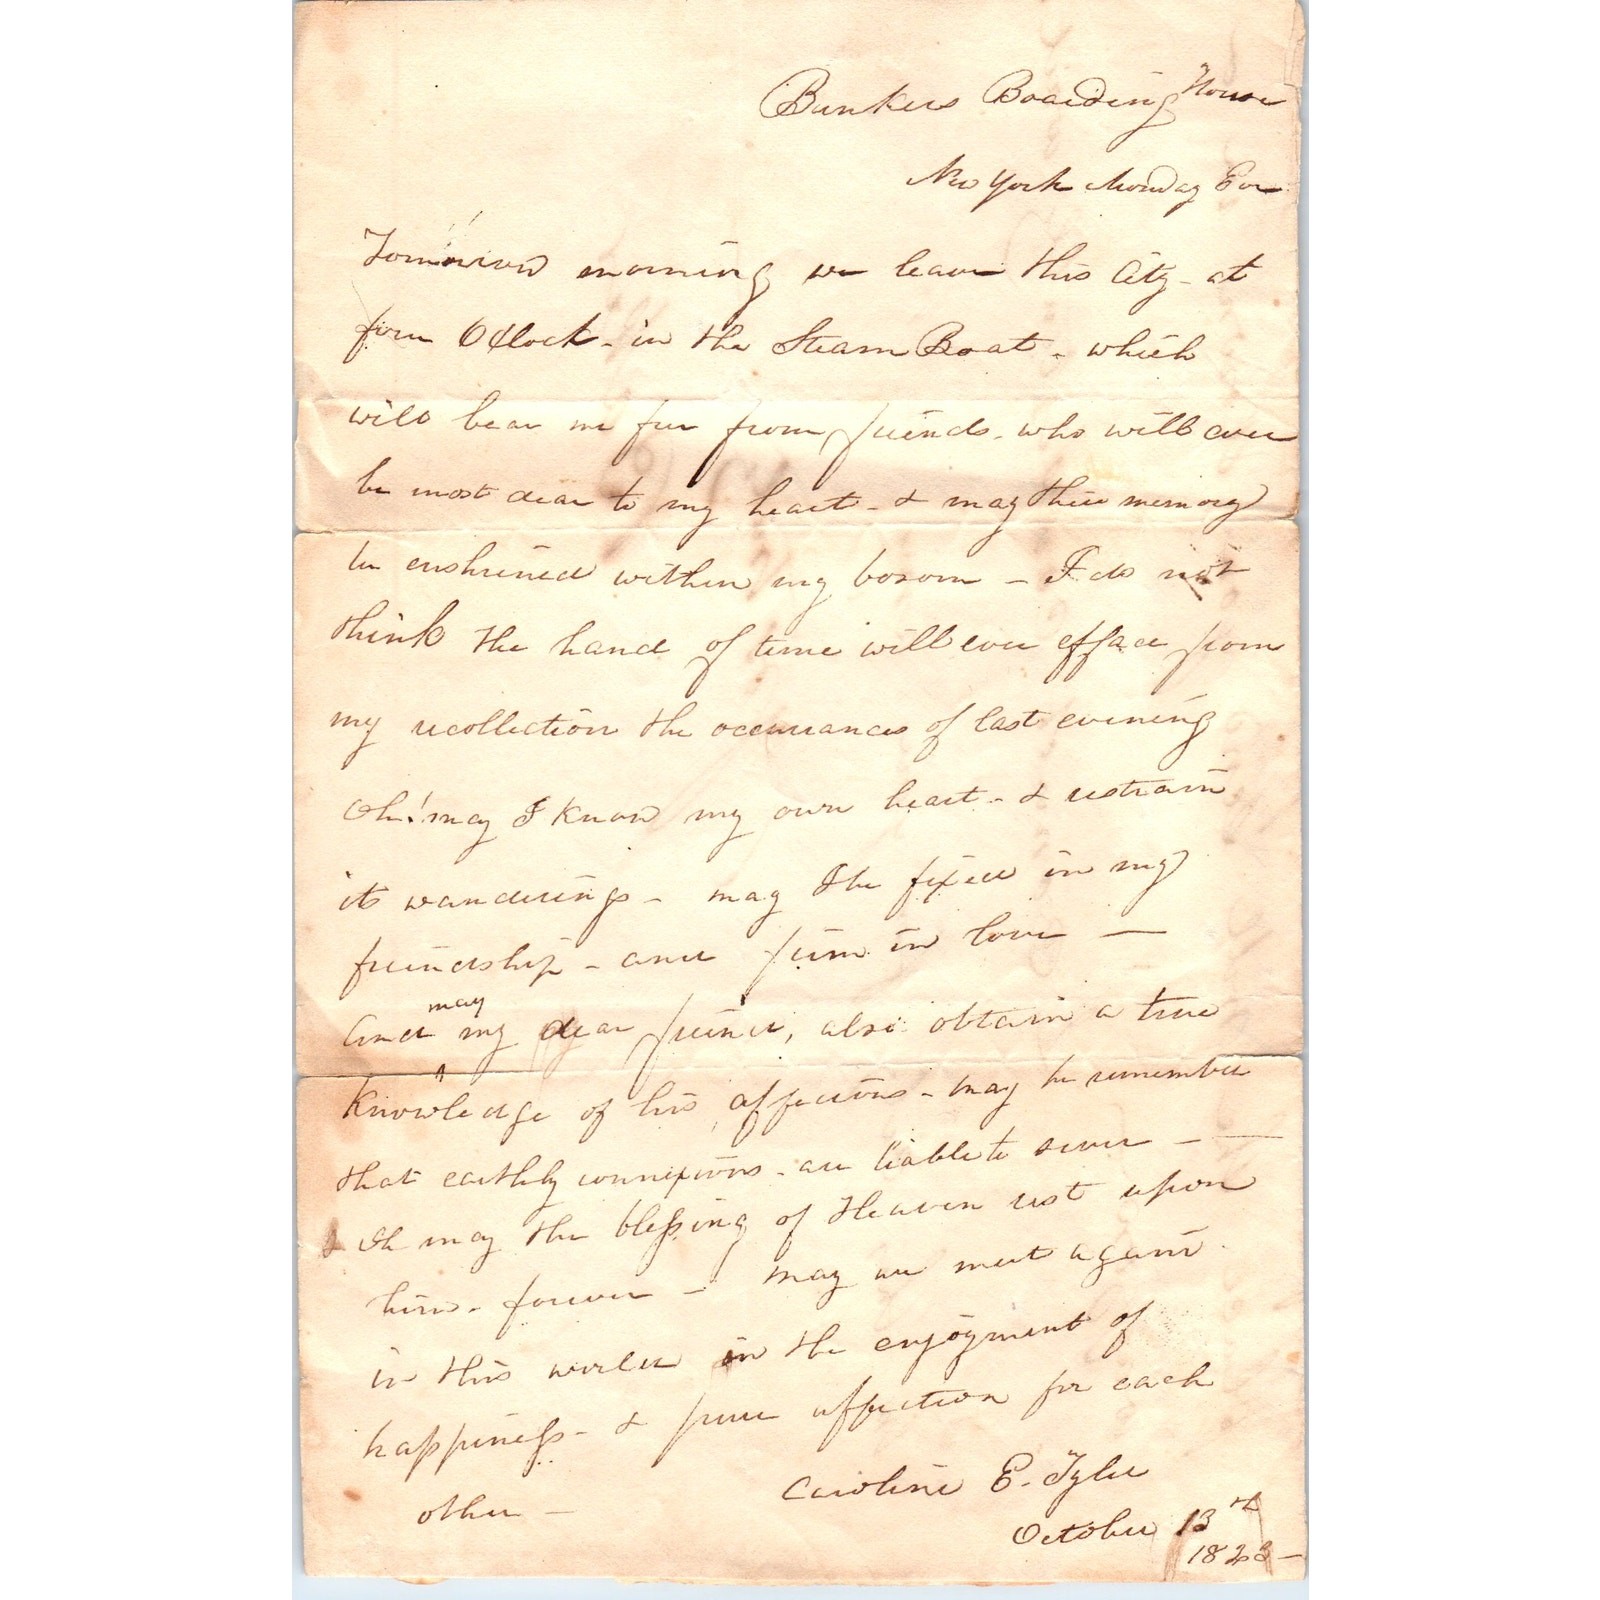 Bunkers Boarding House
New York Monday Eve
Tomorrow morning we leave this City - at
four O Clock - in the Steam Boat - which
will bear me far from friends - who will ever
be most dear to my heart - & may their memory
be enshrined within my bosom - I do not
think the hand of time will ever efface from
my recollection the occurrances of last evening
Oh! may I know my own heart - & restrain
its wanderings - may I be fixed in my
friendship - and firm in love —
And may my dear friend, also obtain a true
knowledge of his affections - may he remember
that earthly connexions - are liable to sever —
& Oh may the blessing of Heaven rest upon
him - forever - may we meet again
in this world in the enjoyment of
happiness - & pure affection for each
other -
Caroline E. Tyler
October 13th
1823 -